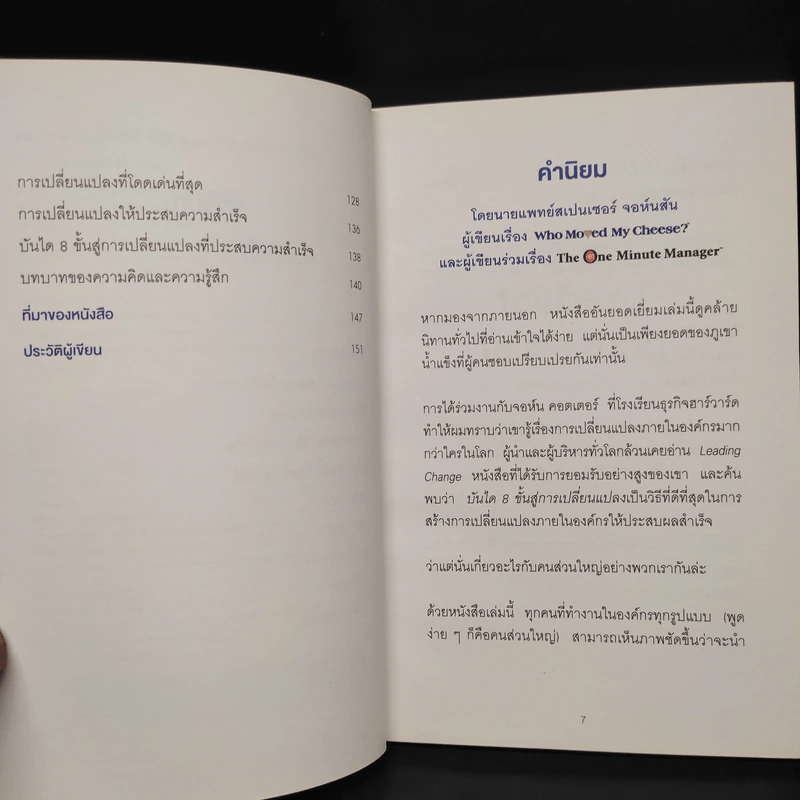 การเปลี่ยนแปลงที่โดดเด่นที่สุด 128
การเปลี่ยนแปลงให้ประสบความสำเร็จ 136
บันได 8 ขั้นสู่การเปลี่ยนแปลงที่ประสบความสำเร็จ 138
บทบาทของความคิดและความรู้สึก 140
ที่มาของหนังสือ 147
ประวัติผู้เขียน 151
คำนิยม
โดยนายแพทย์สเปนเซอร์ จอห์นสัน
ผู้เขียนเรื่อง Who Moved My Cheese?
และผู้เขียนร่วมเรื่อง The One Minute Manager
หากมองจากภายนอก หนังสืออันยอดเยี่ยมเล่มนี้ดูคล้าย
นิทานทั่วไปที่อ่านเข้าใจได้ง่าย แต่นั่นเป็นเพียงยอดของภูเขา
น้ำแข็งที่ผู้คนชอบเปรียบเปรยกันเท่านั้น
การได้ร่วมงานกับจอห์น คอตเตอร์ ที่โรงเรียนธุรกิจฮาร์วาร์ด
ทำให้ผมทราบว่าเขารู้เรื่องการเปลี่ยนแปลงภายในองค์กรมาก
กว่าใครในโลก ผู้นำและผู้บริหารทั่วโลกล้วนเคยอ่าน Leading
Change หนังสือที่ได้รับการยอมรับอย่างสูงของเขา และค้น
พบว่า บันได 8 ขั้นสู่การเปลี่ยนแปลงเป็นวิธีที่ดีที่สุดในการ
สร้างการเปลี่ยนแปลงภายในองค์กรให้ประสบผลสำเร็จ
ว่าแต่นั่นเกี่ยวอะไรกับคนส่วนใหญ่อย่างพวกเรากันล่ะ
ด้วยหนังสือเล่มนี้ ทุกคนที่ทำงานในองค์กรทุกรูปแบบ (พูด
ง่าย ๆ ก็คือคนส่วนใหญ่) สามารถเห็นภาพชัดขึ้นว่าจะนำ
7